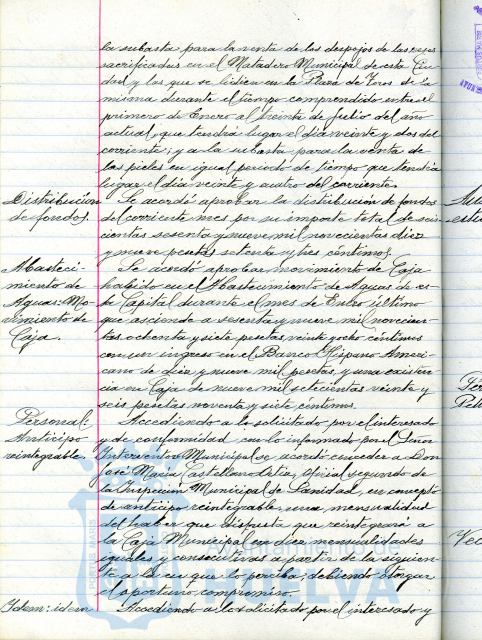 la subasta para la venta de los despojos de las reses
sacrificadas en el Matadero Municipal de esta Ciu-
dad y las que se lidien en la Plaza de Toros de la
misma durante el tiempo comprendido entre el
primero de Enero al treinta de Julio del año
actual, que tendrá lugar el dia veinte y dos del
corriente; y a la subasta para la venta de
las pieles en igual periodo de tiempo que tendrá
lugar el dia veinte y cuatro del corriente.
Distribución
de fondos.
Se acordó aprobar la distribución de fondos
del corriente mes por su importe total de seis-
cientas sesenta y nueve mil novecientas diez
y nueve pesetas setenta y tres céntimos.
Abasteci-
miento de
Aguas: Mo-
vimiento de
Caja.
Se acordó aprobar movimiento de Caja
habido en el Abastecimiento de Aguas de es-
ta Capital durante el mes de Enero último
que asciende a sesenta y nueve mil novecien-
tas ochenta y siete pesetas veinte y ocho céntimos
con un ingreso en el Banco Hispano Ameri-
cano de diez y nueve mil pesetas y una existen-
cia en Caja de nueve mil setecientas veinte y
seis pesetas noventa y siete céntimos.
Personal:
Anticipo
reintegrable
Accediendo a lo solicitado por el interesado
y de conformidad con lo informado por el Señor
Interventor Municipal se acordó conceder a Don
José María Castellano Díaz, Oficial segundo de
la Inspección Municipal de Sanidad, en concepto
de anticipo reintegrable, una mensualidad
del haber que disfruta que reintegrará a
la Caja Municipal en diez mensualidades
iguales y consecutivas a partir de la siguien-
te a la en que lo perciba, debiendo otorgar
el oportuno compromiso.
Idem: idem
Accediendo a lo solicitado por el interesado y
Ayuntamiento de
HUELVA